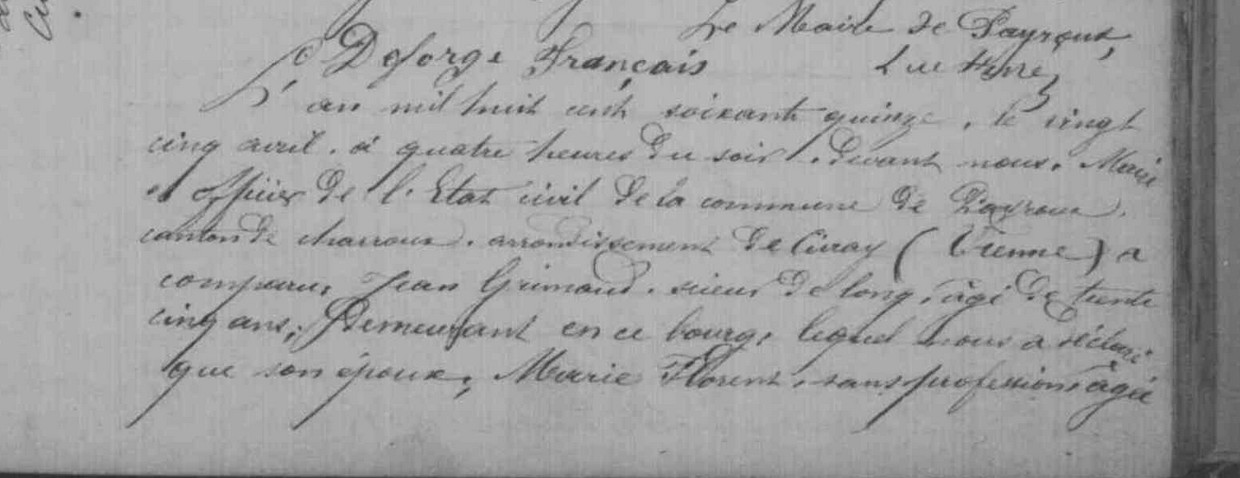 Le Maire de Payroux,
Deforge Français
L'an mil huit cent soixante quinze, le vingt
cinq avril, à quatre heures du soir, devant nous, Maire
et officier de l'Etat civil de la commune de Payroux,
canton de charroux, arrondissement de Civray (Vienne) a
comparu, Jean Grimaud, scieur de long, âgé de trente
cinq ans, Demeurant en ce bourg, lequel nous a déclaré
que son épouse, Marie Florent, sans profession, âgée